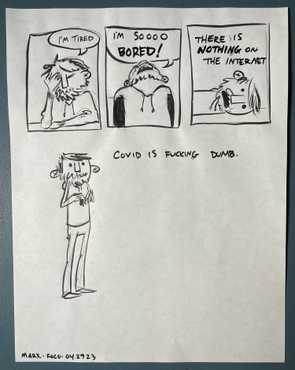 I'M TIRED
I'M SOOOO
BORED!
THERE IS
NOTHING ON
THE INTERNET
COVID IS FUCKING DUMB.
MARX - ROCO - 042923